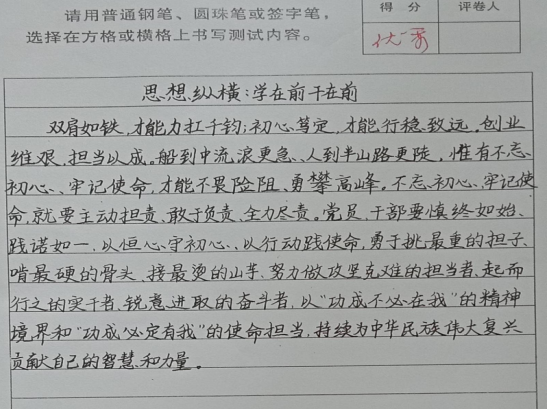 请用普通钢笔、圆珠笔或签字笔，
选择在方格或横格上书写测试内容。
得 分 评卷人
优秀
思想纵横：学在前干在前
双肩如铁，才能力扛千钧；初心笃定，才能行稳致远。创业
维艰，担当以成。船到中流浪更急、人到半山路更陡，惟有不忘
初心、牢记使命，才能不畏险阻、勇攀高峰。不忘初心、牢记使
命，就要主动担责、敢于负责、全力尽责。党员、干部要慎终如始、
践诺如一，以恒心守初心、以行动践使命，勇于挑最重的担子、
啃最硬的骨头、接最烫的山芋，努力做攻坚克难的担当者、起而
行之的实干者、锐意进取的奋斗者，以“功成不必在我”的精神
境界和“功成必定有我”的使命担当，持续为中华民族伟大复兴
贡献自己的智慧和力量。